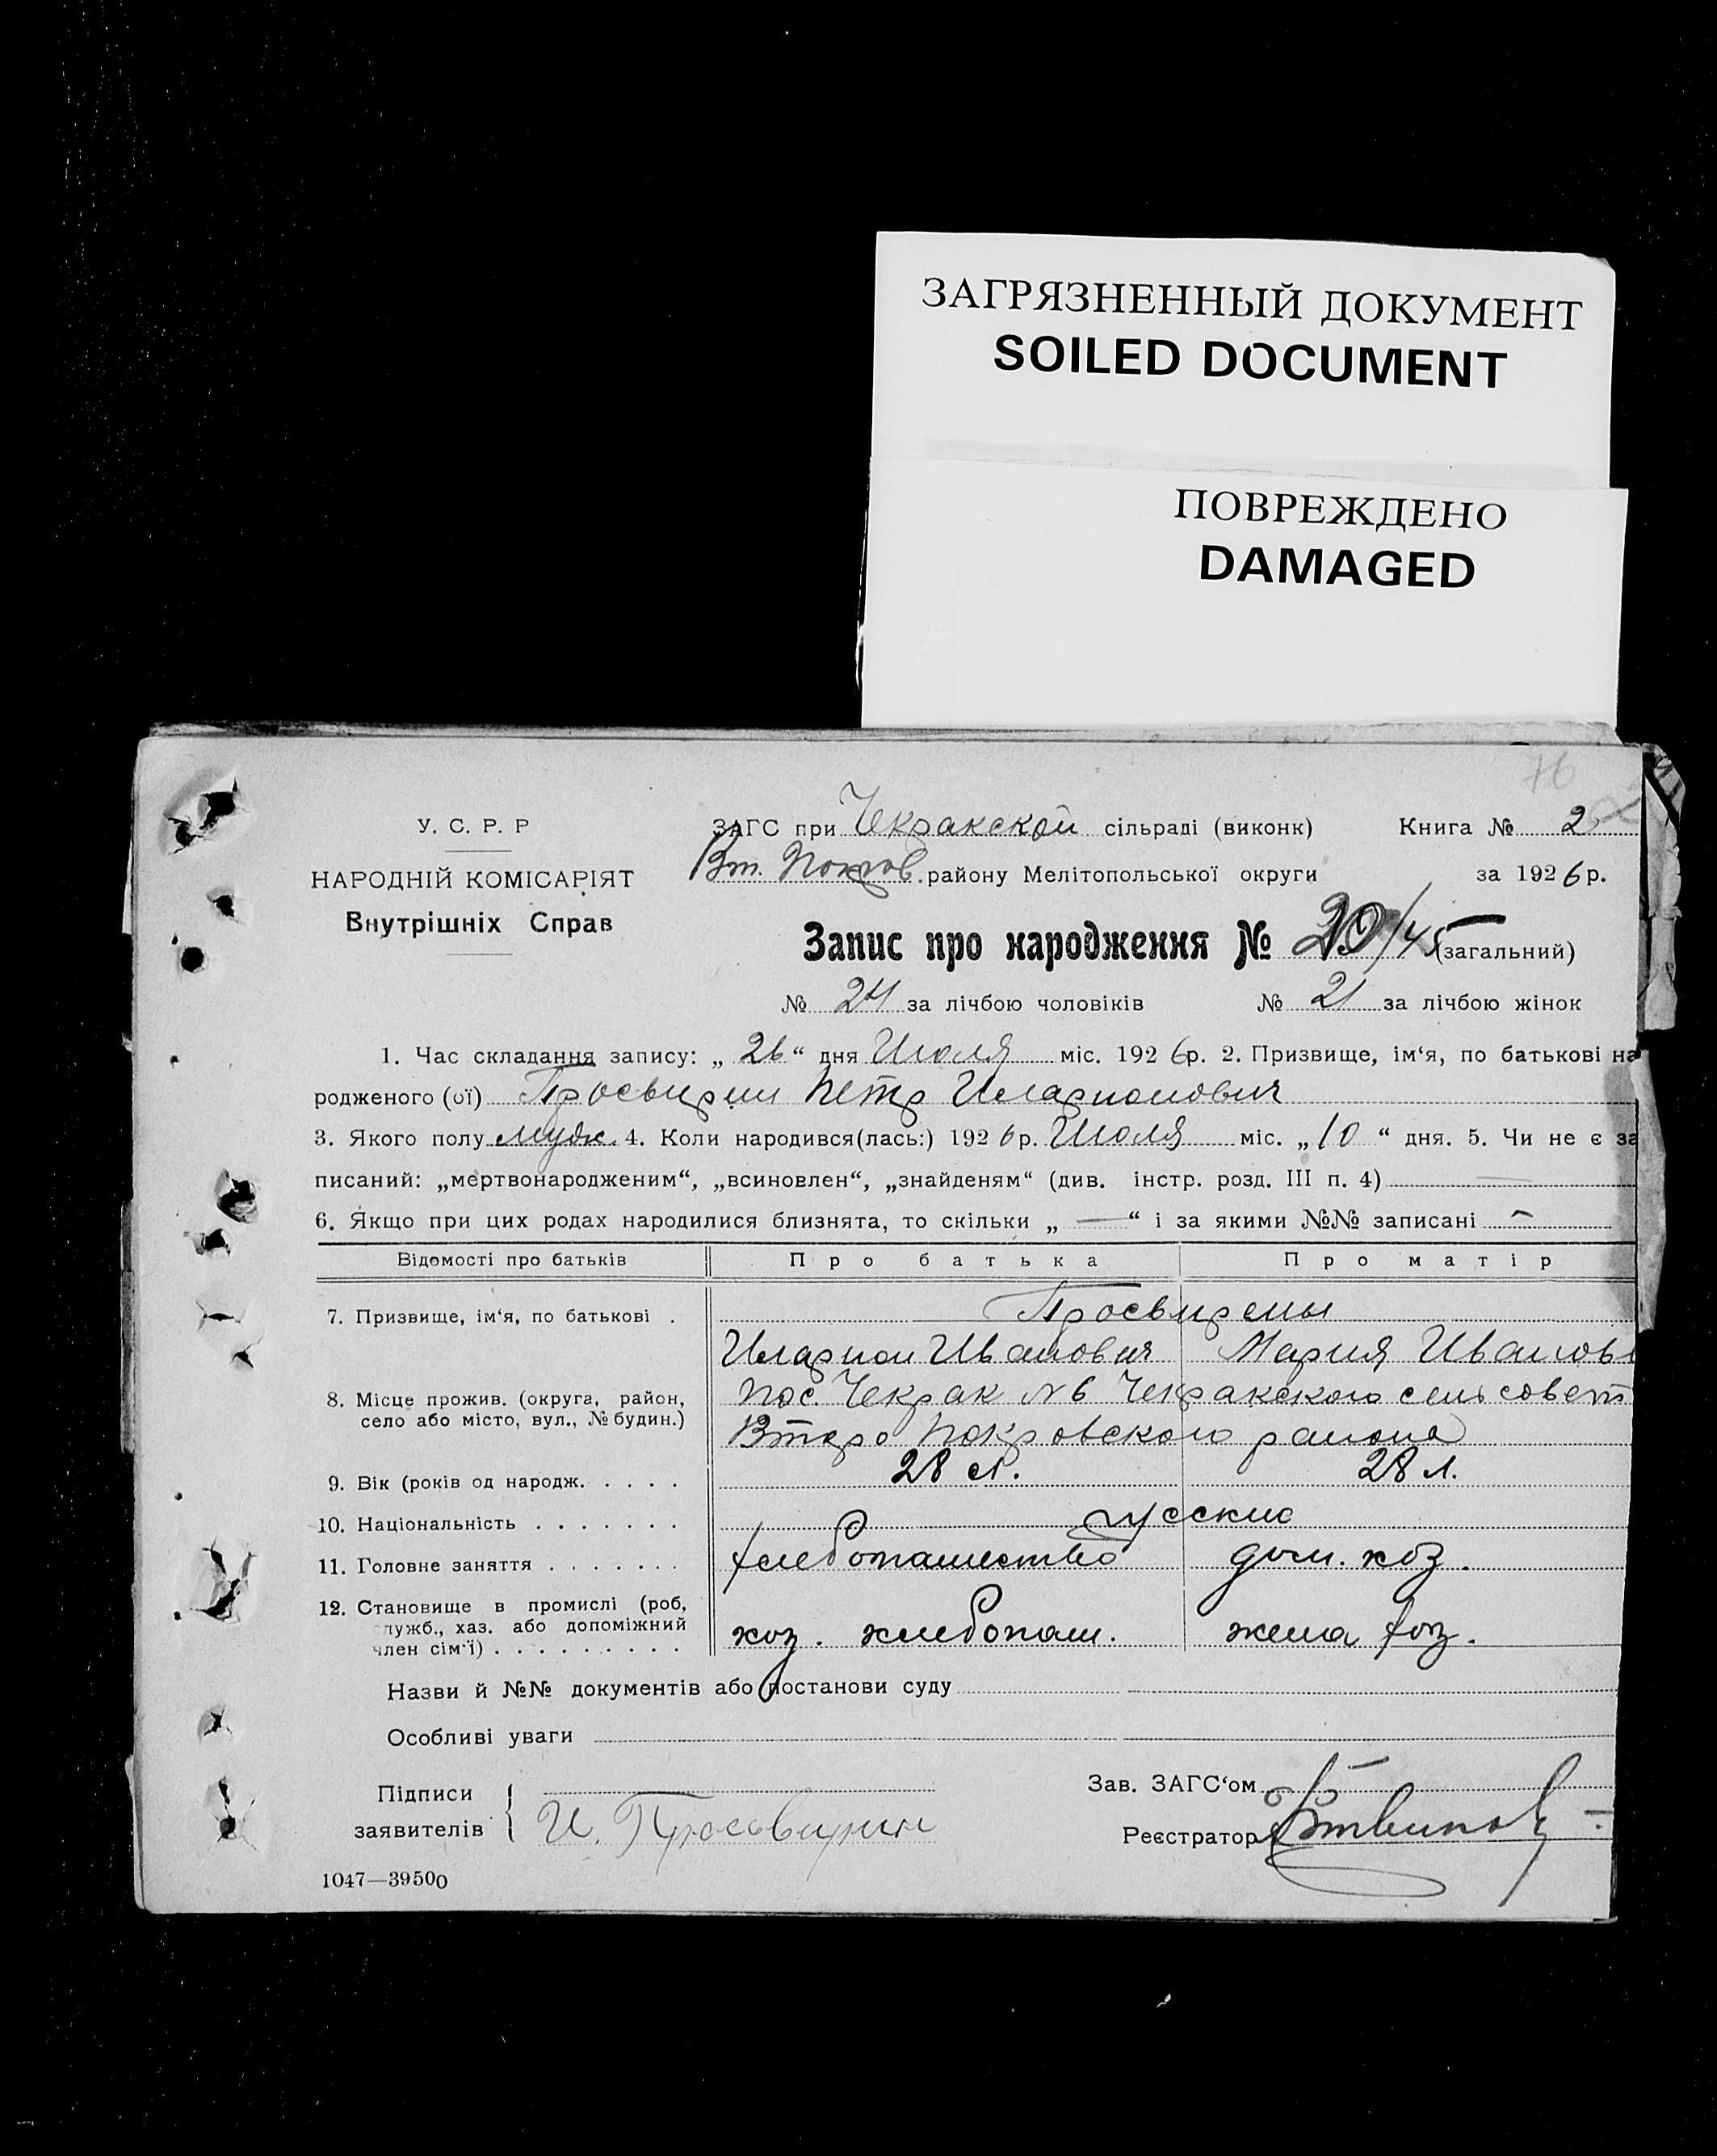 ЗАГРЯЗНЕННЫЙ ДОКУМЕНТ
SOILED DOCUMENT
ПОВРЕЖДЕНО
DAMAGED
76
У. С. Р. Р
НАРОДНІЙ КОМІСАРІЯТ
Внутрішніх Справ
ЗАГС при Чекракской сільраді (виконк) Книга № 2
Вт. Покров. району Мелітопольської округи за 1926 р.
Запис про народження № /45 (загальний)
№ 24 за лічбою чоловіків № 21 за лічбою жінок
1. Час складання запису: „ 26 “ дня Июля міс. 1926 р. 2. Призвище, ім‘я, по батькові на
родженого (ої) Просвирин Петр Иларионович
3. Якого полу мужс. 4. Коли народився(лась:) 1926 р. Июля міс. „ 10 “ дня. 5. Чи не є за
писаний: „мертвонародженим“, „всиновлен“, „знайденям“ (див. інстр. розд. III п. 4) —
6. Якщо при цих родах народилися близнята, то скільки „ — “ і за якими №№ записані —
Відомості про батьків Про батька Про матір
7. Призвище, ім‘я, по батькові . Просвирены
Иларион Иванович Мария Иванов
8. Місце прожив. (округа, район, село або місто, вул., № будин.) пос. Чекрак N 6 Чекракского сельсовет
Второ Покровского района
9. Вік (років од народж. . . . . 28 л. 28 л.
10. Національність . . . . . . . русские
11. Головне заняття . . . . . . . хлебопашество дом. хоз.
12. Становище в промислі (роб, служб., хаз. або допоміжний член сім‘ї) . . . . . . . . . хоз. хлебопаш. жена хоз.
Назви й №№ документів або постанови суду
Особливі уваги
Підписи
заявителів И. Просвирин
Зав. ЗАГС‘ом
Реєстратор
1047—39500